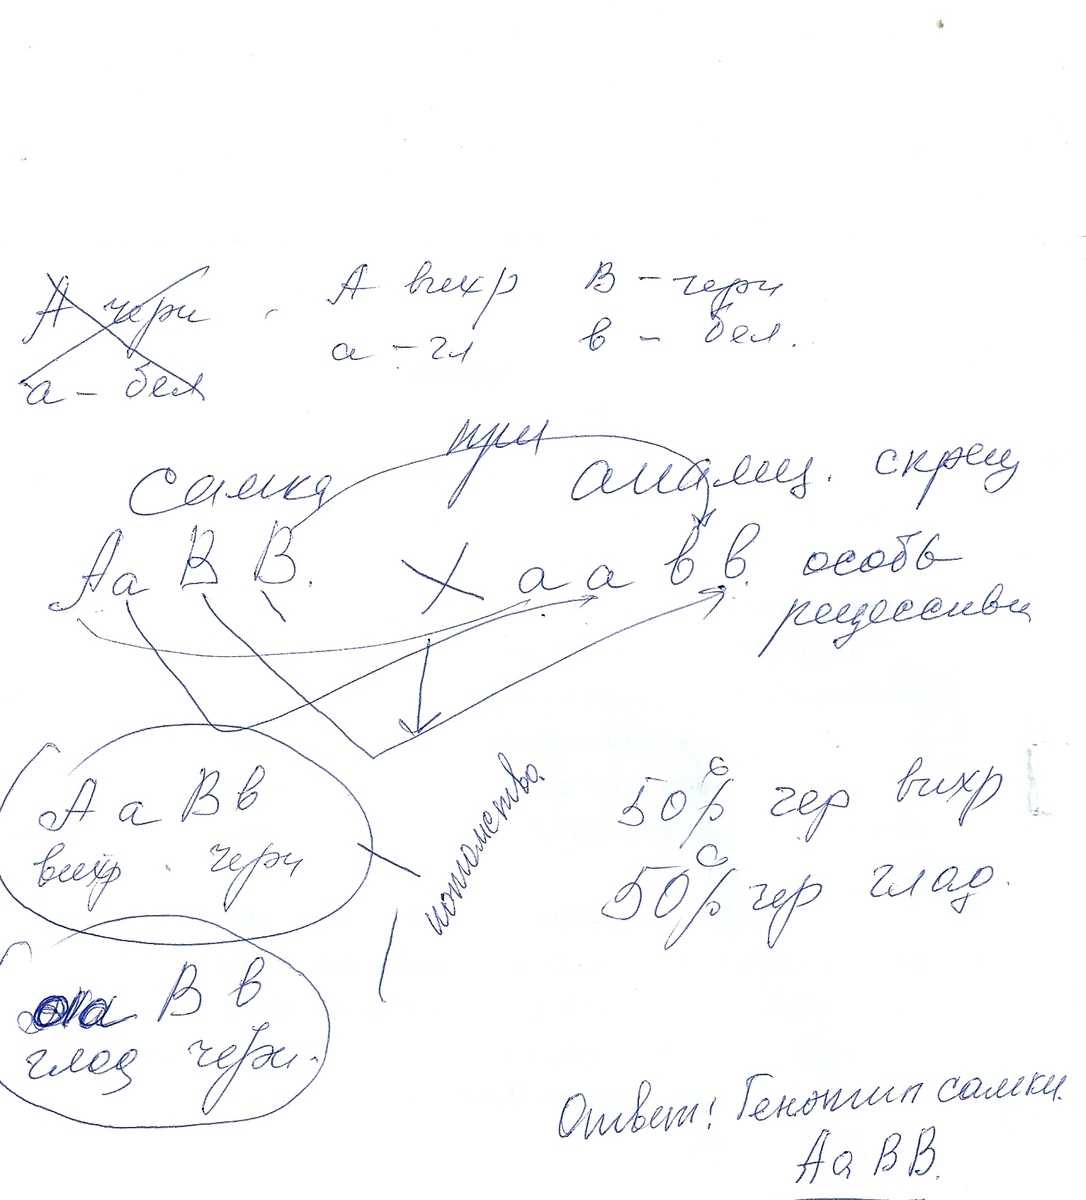 А черн
а - бел
А вихр В - черн
а - гл в - бел.
Самка при анализ. скрещ
Аа В В. X а а в в. особь
рецессивн
А а В в
вихр. черн
потомство.
50% чер вихр
50% чер глад.
аа В в
глад черн.
Ответ! Генотип самки.
Аа ВВ.